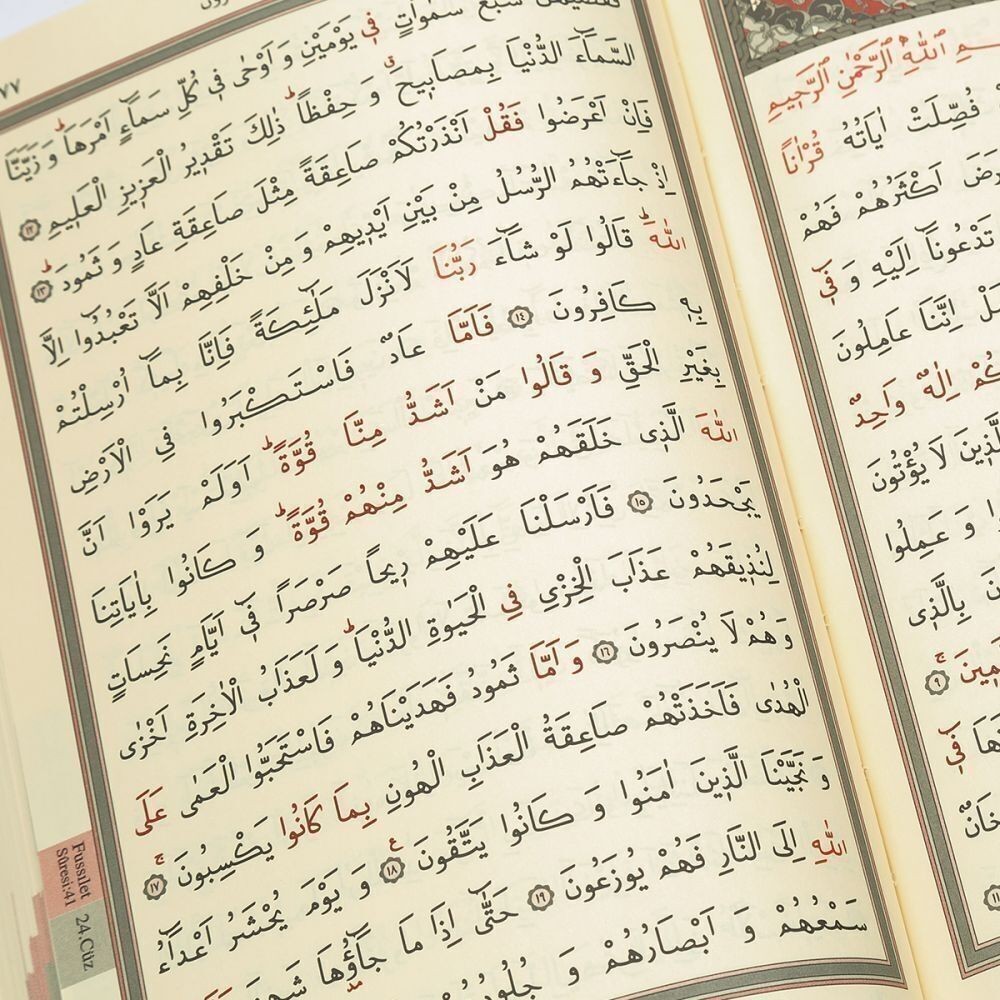 اللّٰهِ الرَّحْمٰنِ الرَّحٖيمِ
فُصِّلَتْ اٰيَاتُهُ قُرْاٰناً
اَكْثَرُهُمْ فَهُمْ
تَدْعُونَٓا اِلَيْهِ وَ فٖٓى
اِنَّنَا عَامِلُونَ
اِلٰهٌ وَاحِدٌ
لَا يُؤْتُونَ
وَ عَمِلُوا
بِالَّذٖى
٩
فٖٓى
٧٧
سَبْعَ سَمٰوَاتٍ فٖى يَوْمَيْنِ وَ اَوْحٰى فٖى كُلِّ سَمَٓاءٍ اَمْرَهَاۜ وَ زَيَّنَّا
السَّمَٓاءَ الدُّنْيَا بِمَصَابٖيحَۗ وَ حِفْظاًۜ ذٰلِكَ تَقْدٖيرُ الْعَزٖيزِ الْعَلٖيمِ ١٢
فَاِنْ اَعْرَضُوا فَقُلْ اَنْذَرْتُكُمْ صَاعِقَةً مِثْلَ صَاعِقَةِ عَادٍ وَ ثَمُودَۜ ١٣
اِذْ جَٓاءَتْهُمُ الرُّسُلُ مِنْ بَيْنِ اَيْدٖيهِمْ وَ مِنْ خَلْفِهِمْ اَلَّا تَعْبُدُٓوا اِلَّا
اللّٰهَۜ قَالُوا لَوْ شَٓاءَ رَبُّنَا لَاَنْزَلَ مَلٰٓئِكَةً فَاِنَّا بِمَٓا اُرْسِلْتُمْ
بِهٖ كَافِرُونَ ١٤ فَاَمَّا عَادٌ فَاسْتَكْبَرُوا فِى الْاَرْضِ
بِغَيْرِ الْحَقِّ وَ قَالُوا مَنْ اَشَدُّ مِنَّا قُوَّةًۜ اَوَلَمْ يَرَوْا اَنَّ
اللّٰهَ الَّذٖى خَلَقَهُمْ هُوَ اَشَدُّ مِنْهُمْ قُوَّةًۜ وَ كَانُوا بِاٰيَاتِنَا
يَجْحَدُونَ ١٥ فَاَرْسَلْنَا عَلَيْهِمْ رٖيحاً صَرْصَراً فٖٓى اَيَّامٍ نَحِسَاتٍ
لِنُذٖيقَهُمْ عَذَابَ الْخِزْىِ فِى الْحَيٰوةِ الدُّنْيَاۜ وَ لَعَذَابُ الْاٰخِرَةِ اَخْزٰى
وَ هُمْ لَا يُنْصَرُونَ ١٦ وَ اَمَّا ثَمُودُ فَهَدَيْنَاهُمْ فَاسْتَحَبُّوا الْعَمٰى عَلَى
الْهُدٰى فَاَخَذَتْهُمْ صَاعِقَةُ الْعَذَابِ الْهُونِ بِمَا كَانُوا يَكْسِبُونَۚ ١٧
وَ نَجَّيْنَا الَّذٖينَ اٰمَنُوا وَ كَانُوا يَتَّقُونَ ١٨ وَ يَوْمَ يُحْشَرُ اَعْدَٓاءُ
اللّٰهِ اِلَى النَّارِ فَهُمْ يُوزَعُونَ ١٩ حَتّٰٓى اِذَا مَا جَٓاؤُ۫هَا
سَمْعُهُمْ وَ اَبْصَارُهُمْ وَ
Fussılet
Sûresi:41
24.Cüz